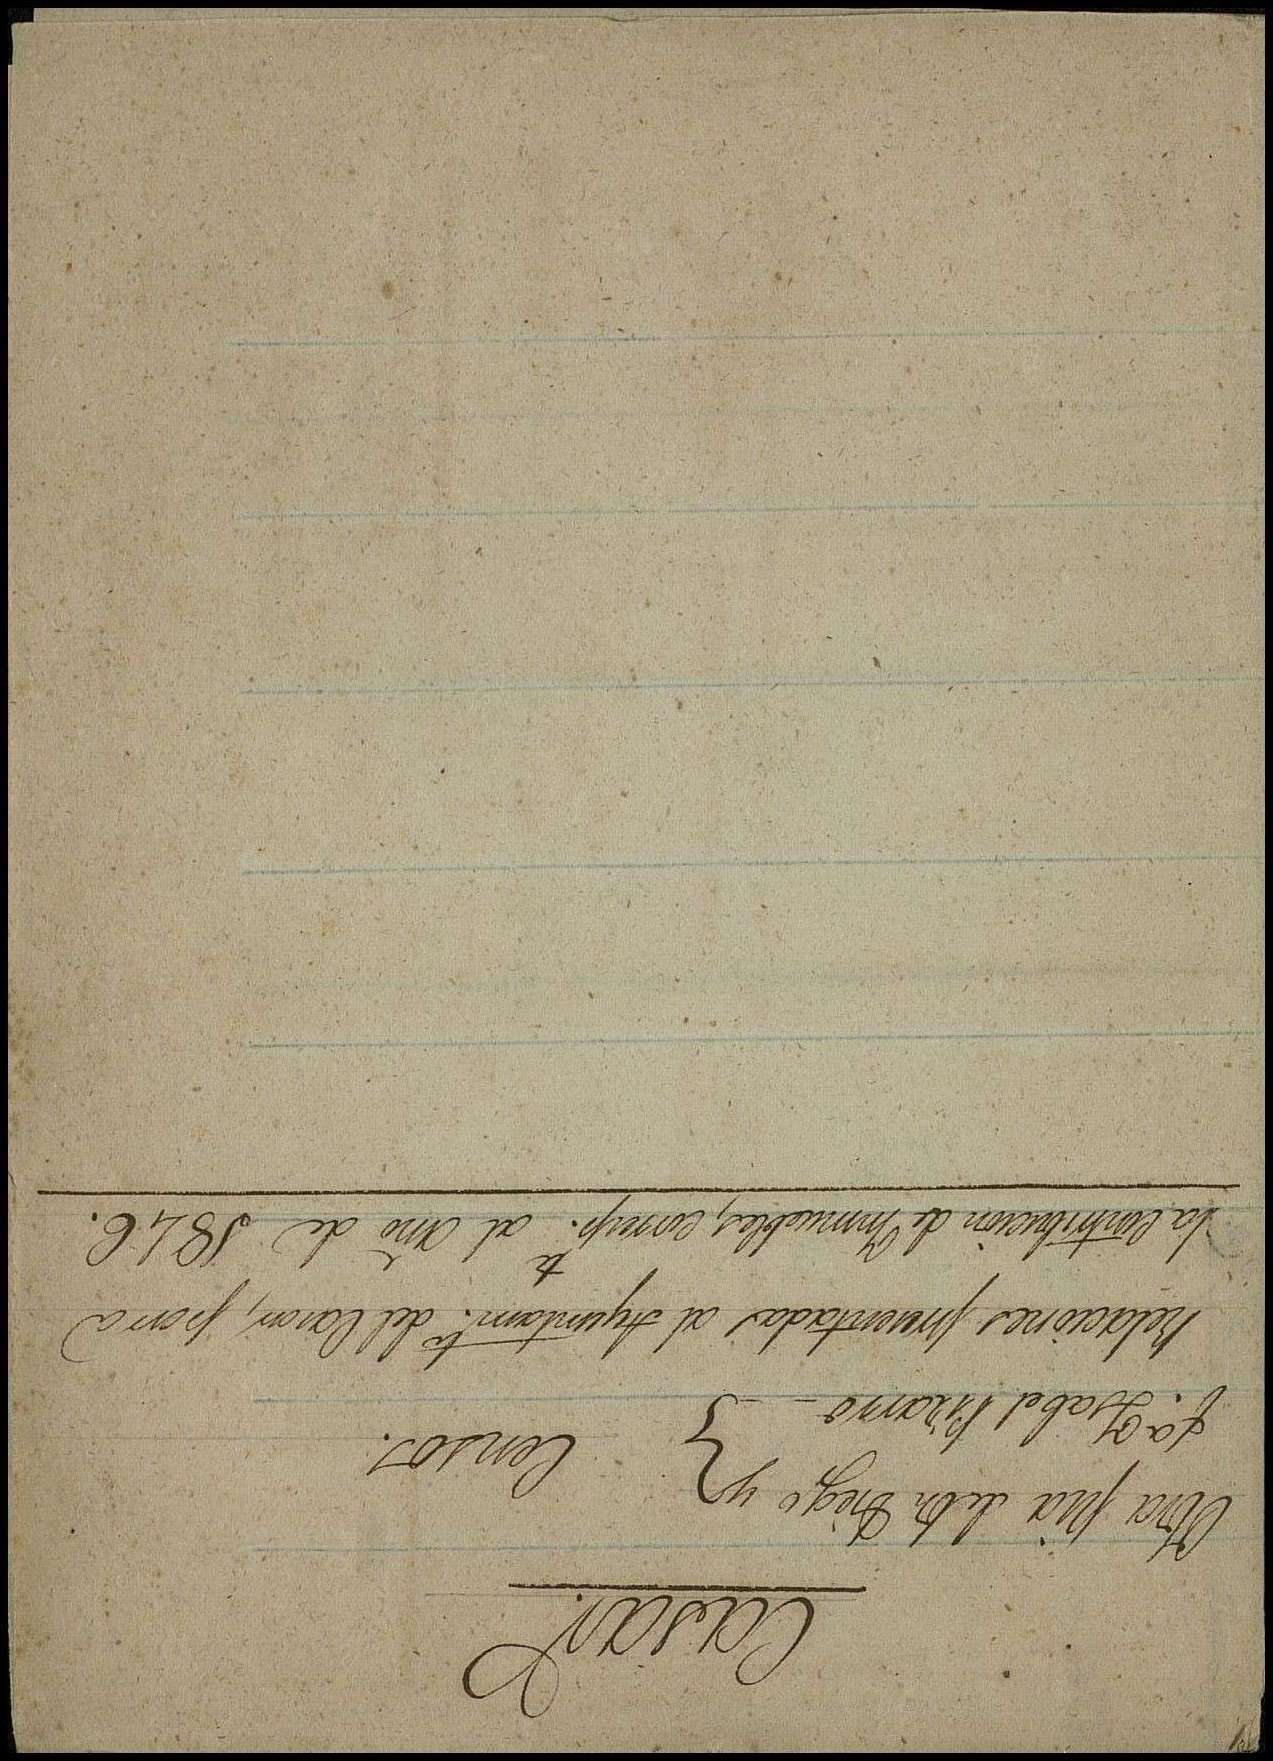 Casar.
Obra pia de Dn Diego y
Dª Ysabel Pizarro
Censos.
Relaciones presentadas al Ayuntamto. del Casar, para
la Contribucion de Ynmuebles, corresp.te al año de 1846.